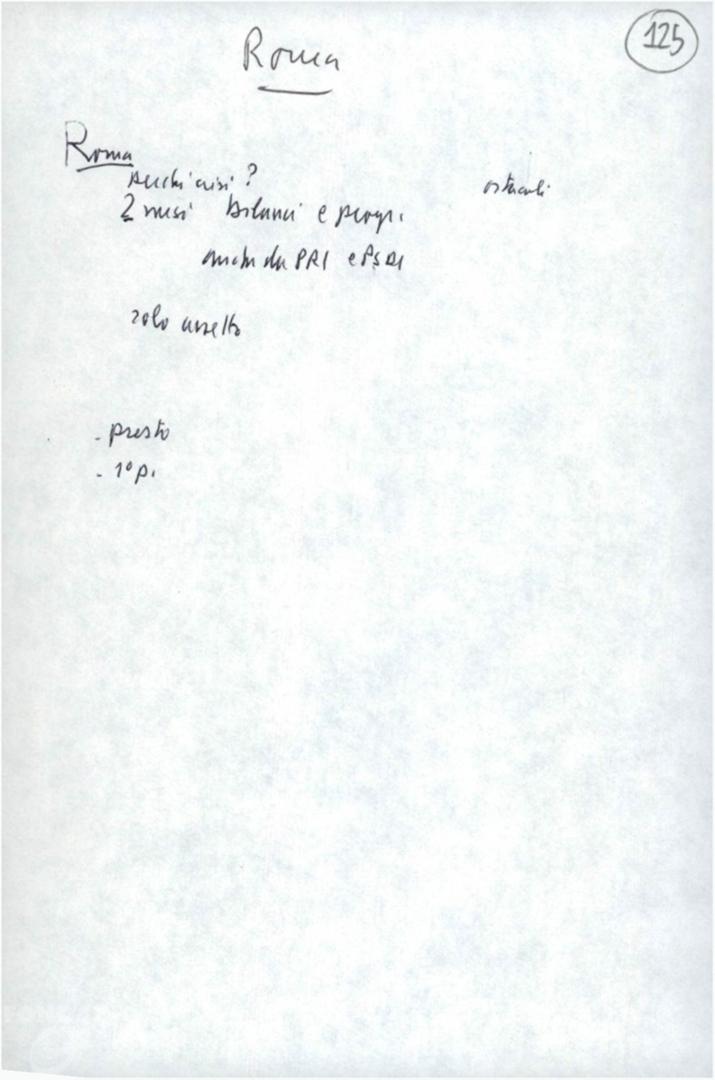 Roma
125
Roma
perché crisi?
ostacoli
2 mesi bilanci e progr.
anche da PRI e PSDI
solo assetto
- presto
- 1° p.